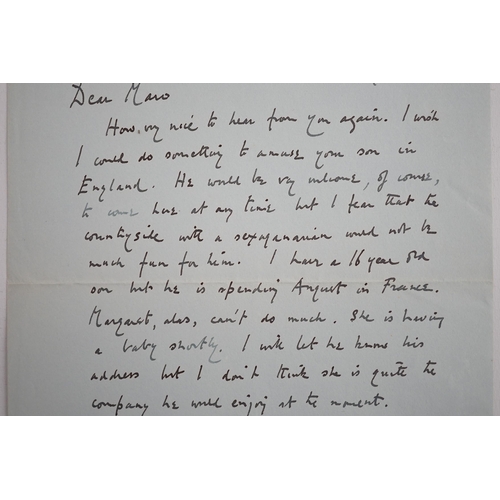 Dear Maro
How very nice to hear from you again. I wish
I could do something to amuse your son in
England. He would be very welcome, of course,
to come here at any time but I fear that the
countryside with a sexagenarian would not be
much fun for him. I have a 16 year old
son but he is spending August in France.
Margaret, alas, can't do much. She is having
a baby shortly. I will let her know his
address but I don't think she is quite the
company he would enjoy at the moment.